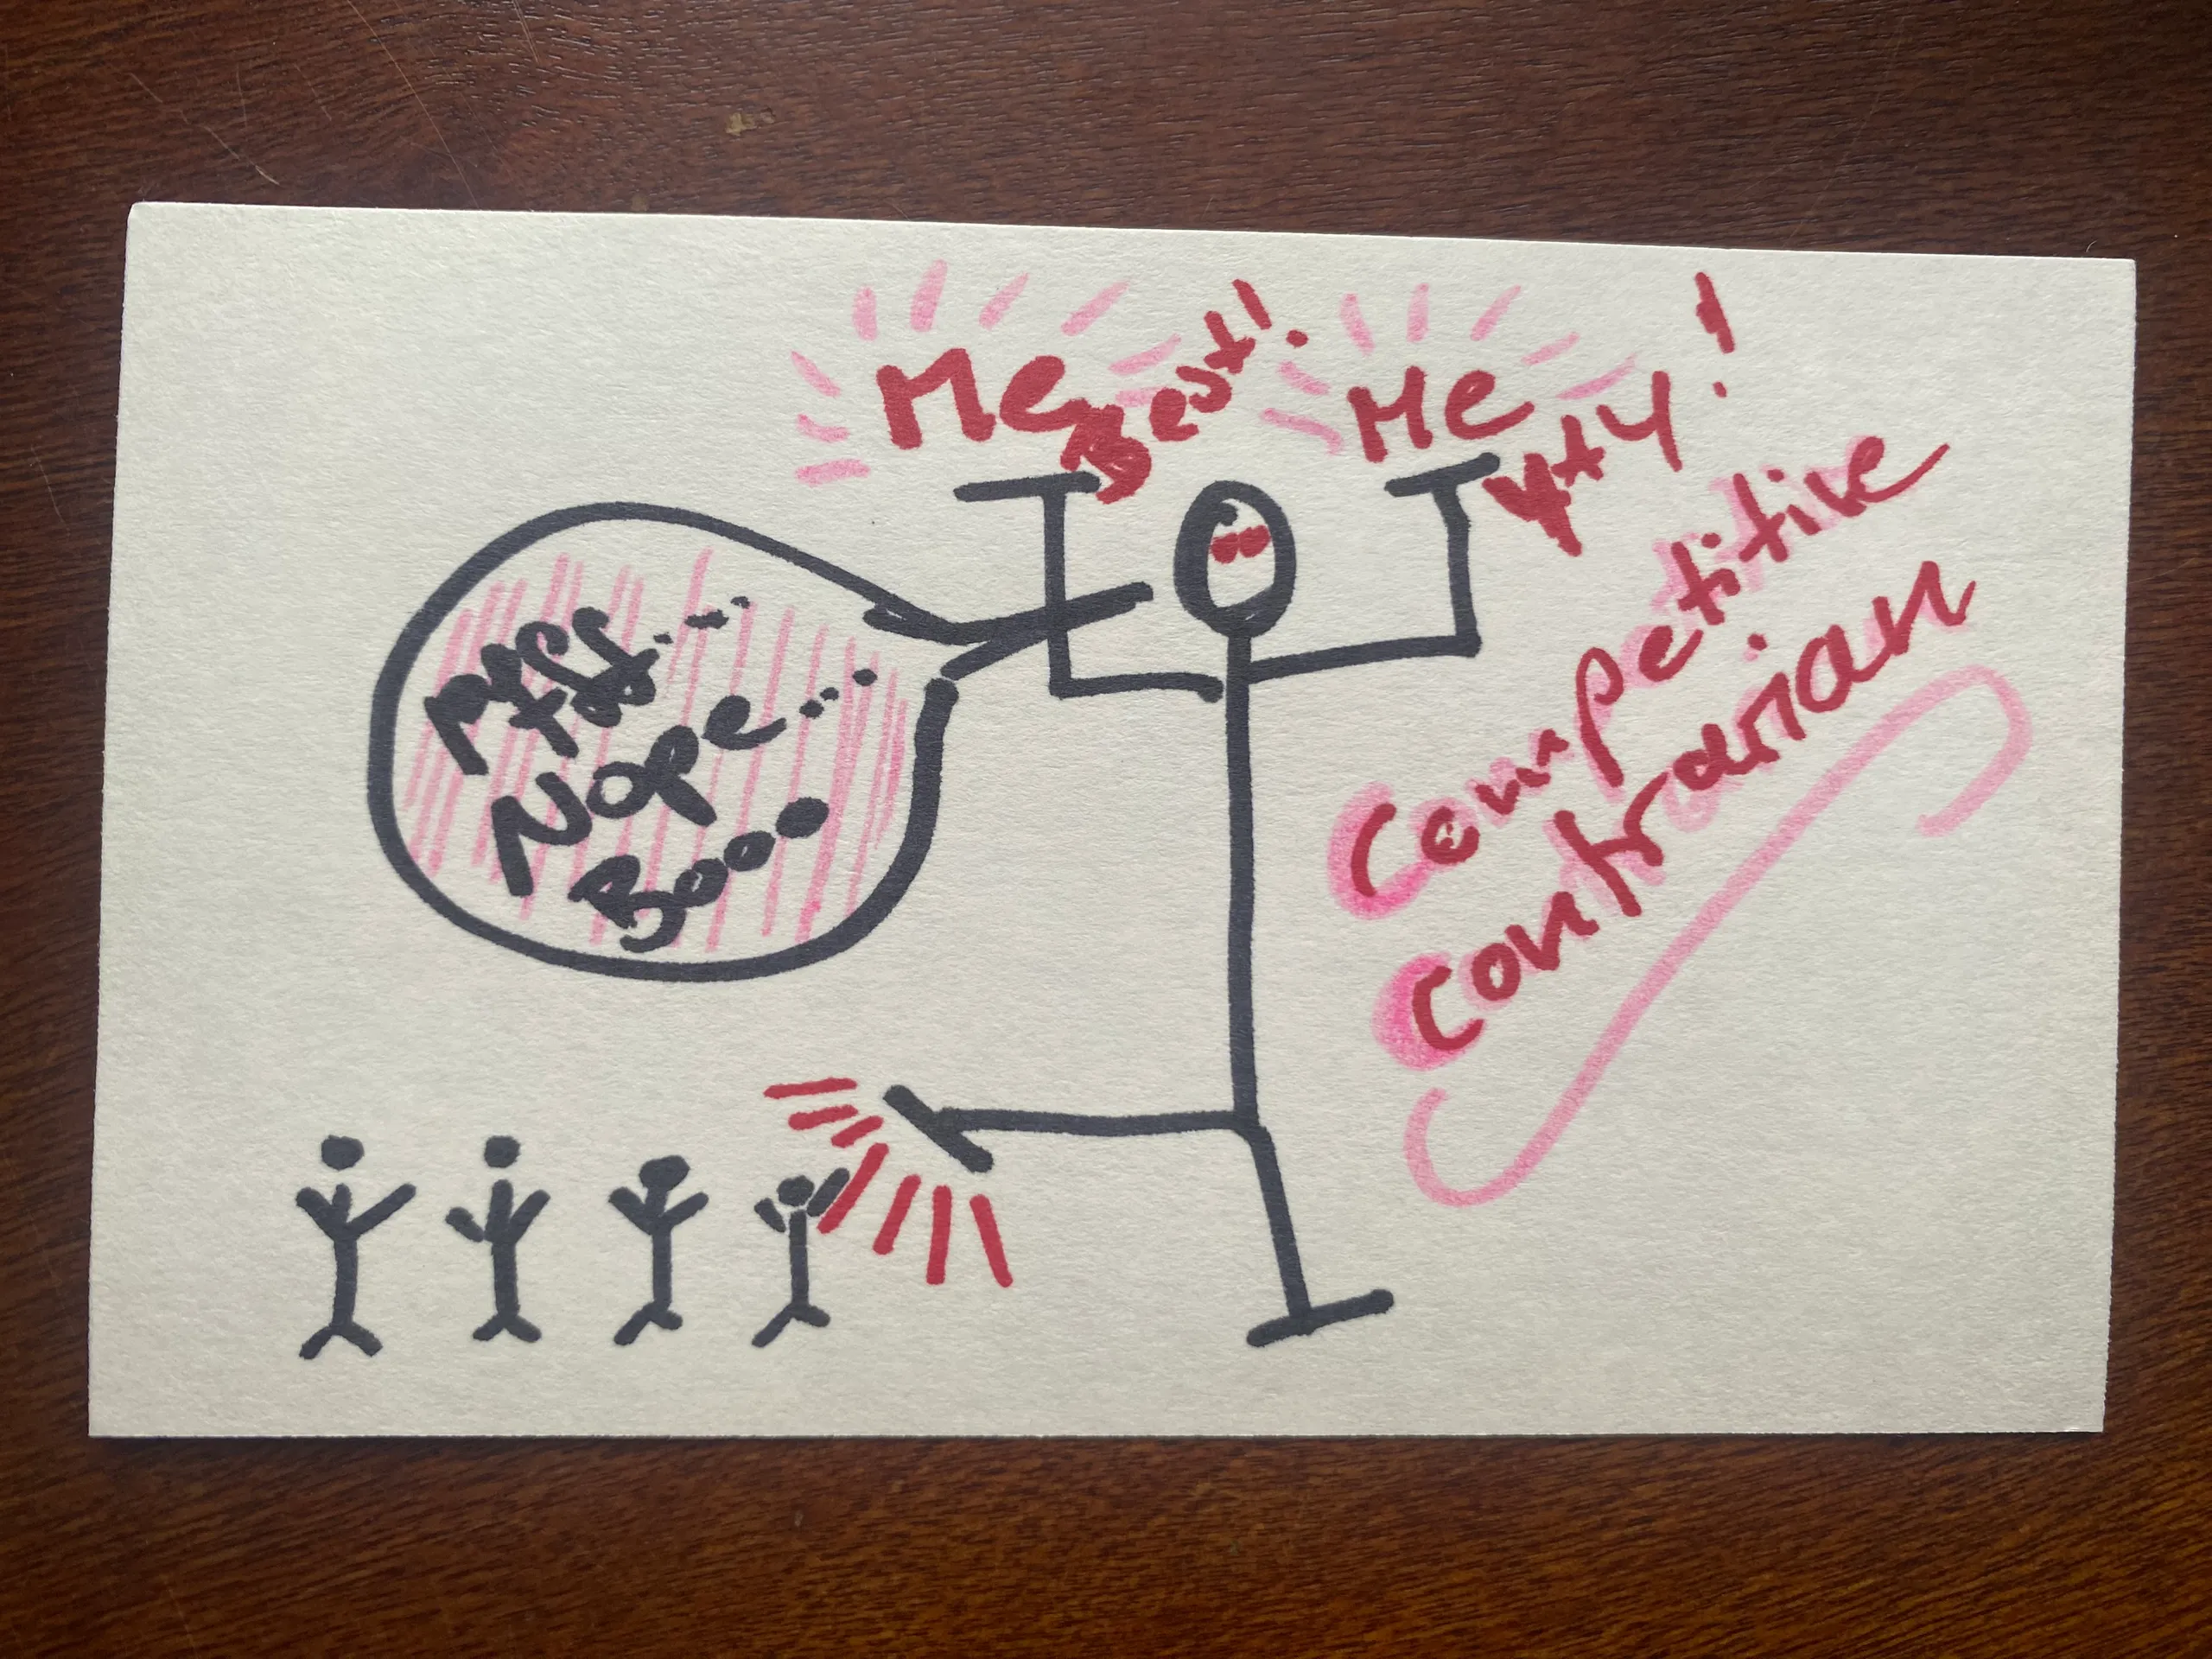 Me Best!
Me
Nope...
Booo
Competitive
Contrarian